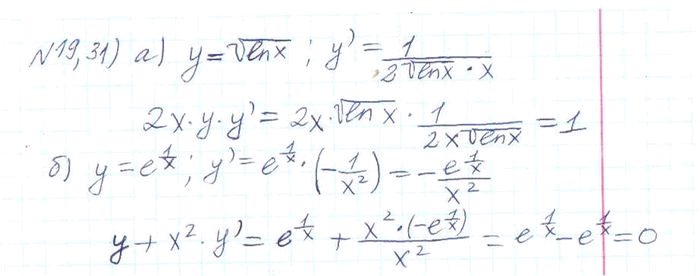 N19,31) а) y = √lnx ; y' = 1/(2√lnx · x)
2x · y · y' = 2x · √lnx · 1/(2x√lnx) = 1
б) y = e^(1/x) ; y' = e^(1/x) · (-1/x²) = -e^(1/x)/x²
y + x² · y' = e^(1/x) + x² · (-e^(1/x))/x² = e^(1/x) - e^(1/x) = 0